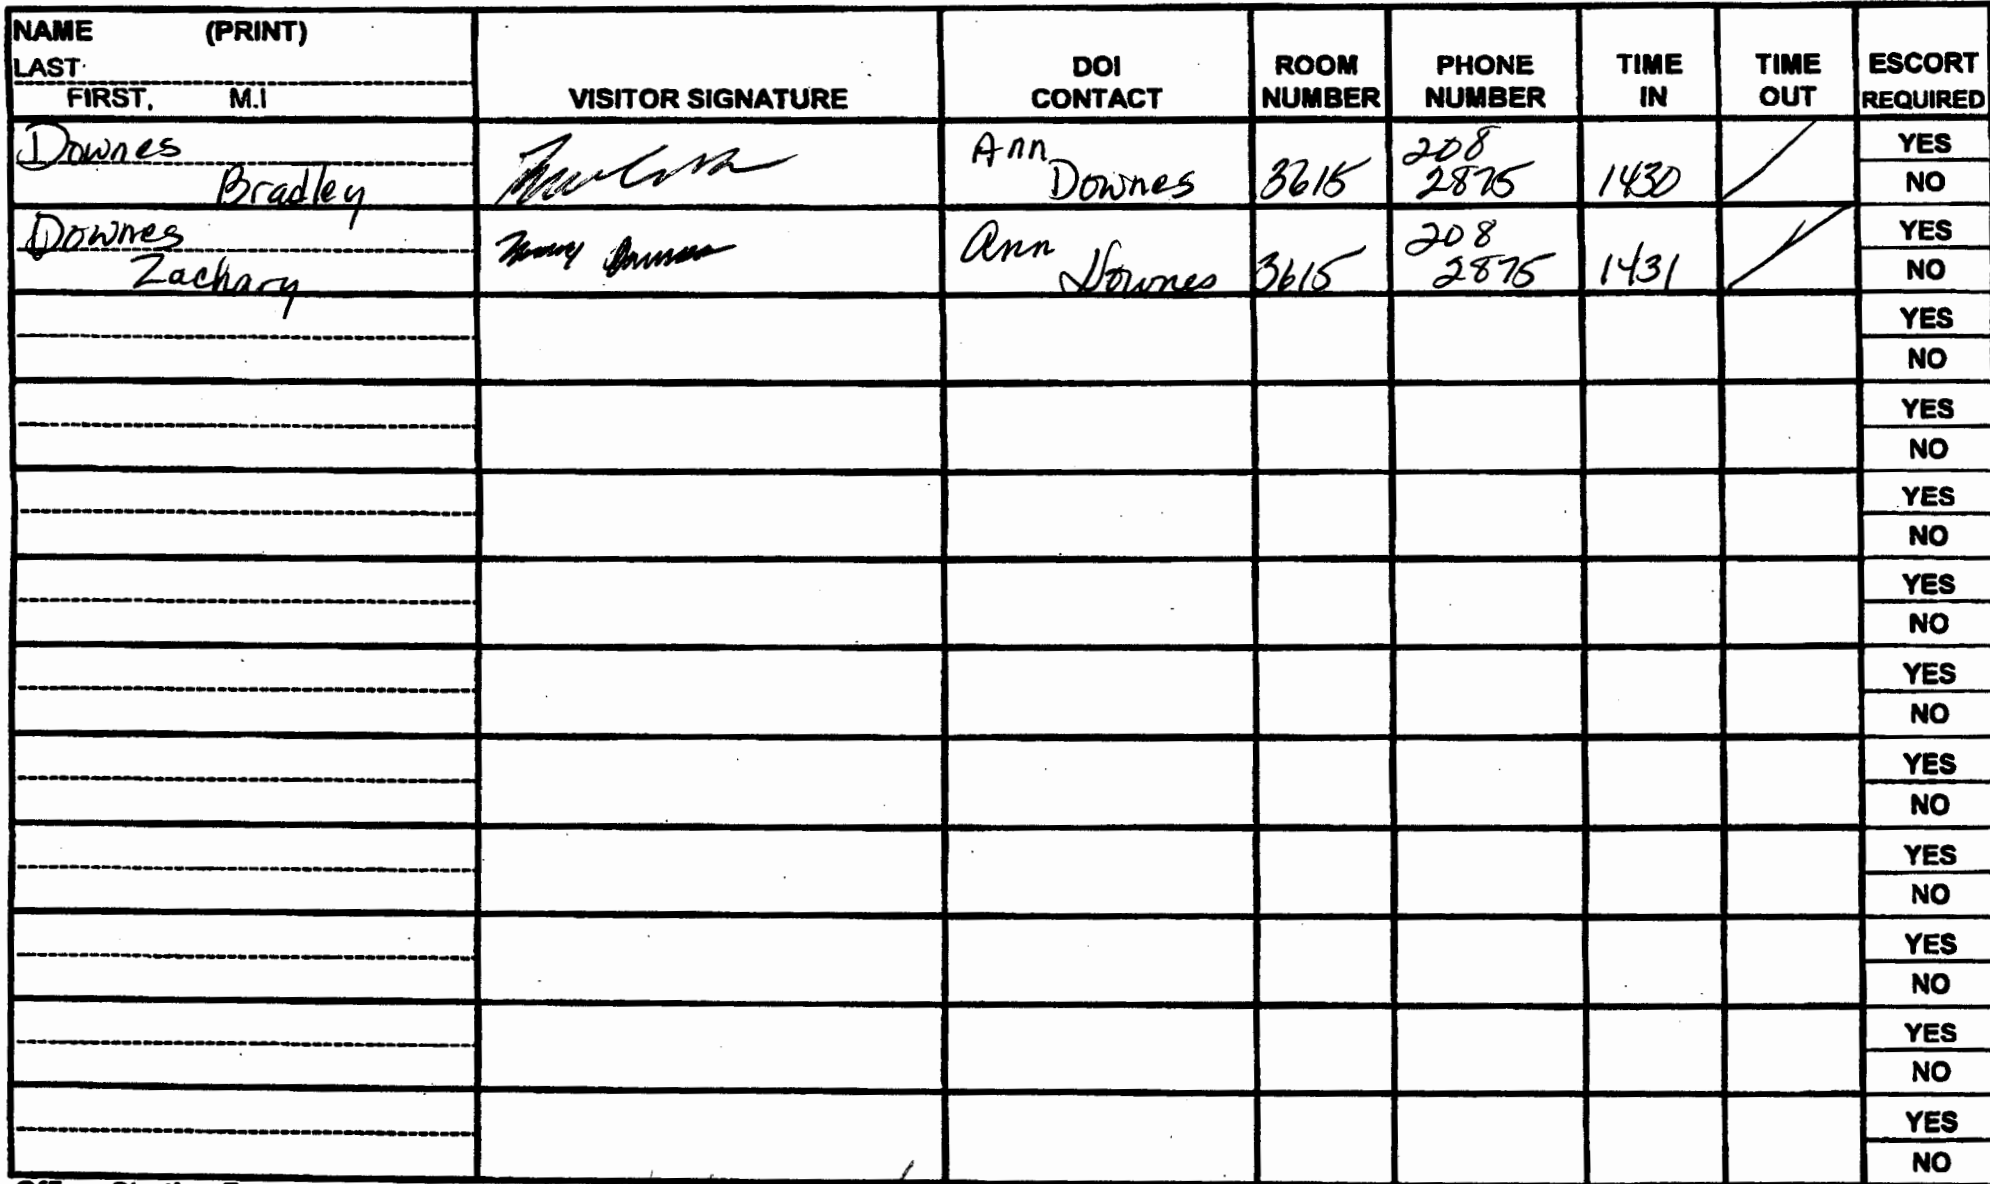 NAME (PRINT)
LAST
FIRST, M.I
VISITOR SIGNATURE
DOI
CONTACT
ROOM
NUMBER
PHONE
NUMBER
TIME
IN
TIME
OUT
ESCORT
REQUIRED
Downes
Bradley
Ann
Downes
3615
208
2875
1430
YES
NO
Downes
Zachary
Ann
Downes
3615
208
2875
1431
YES
NO
YES
NO
YES
NO
YES
NO
YES
NO
YES
NO
YES
NO
YES
NO
YES
NO
YES
NO
YES
NO